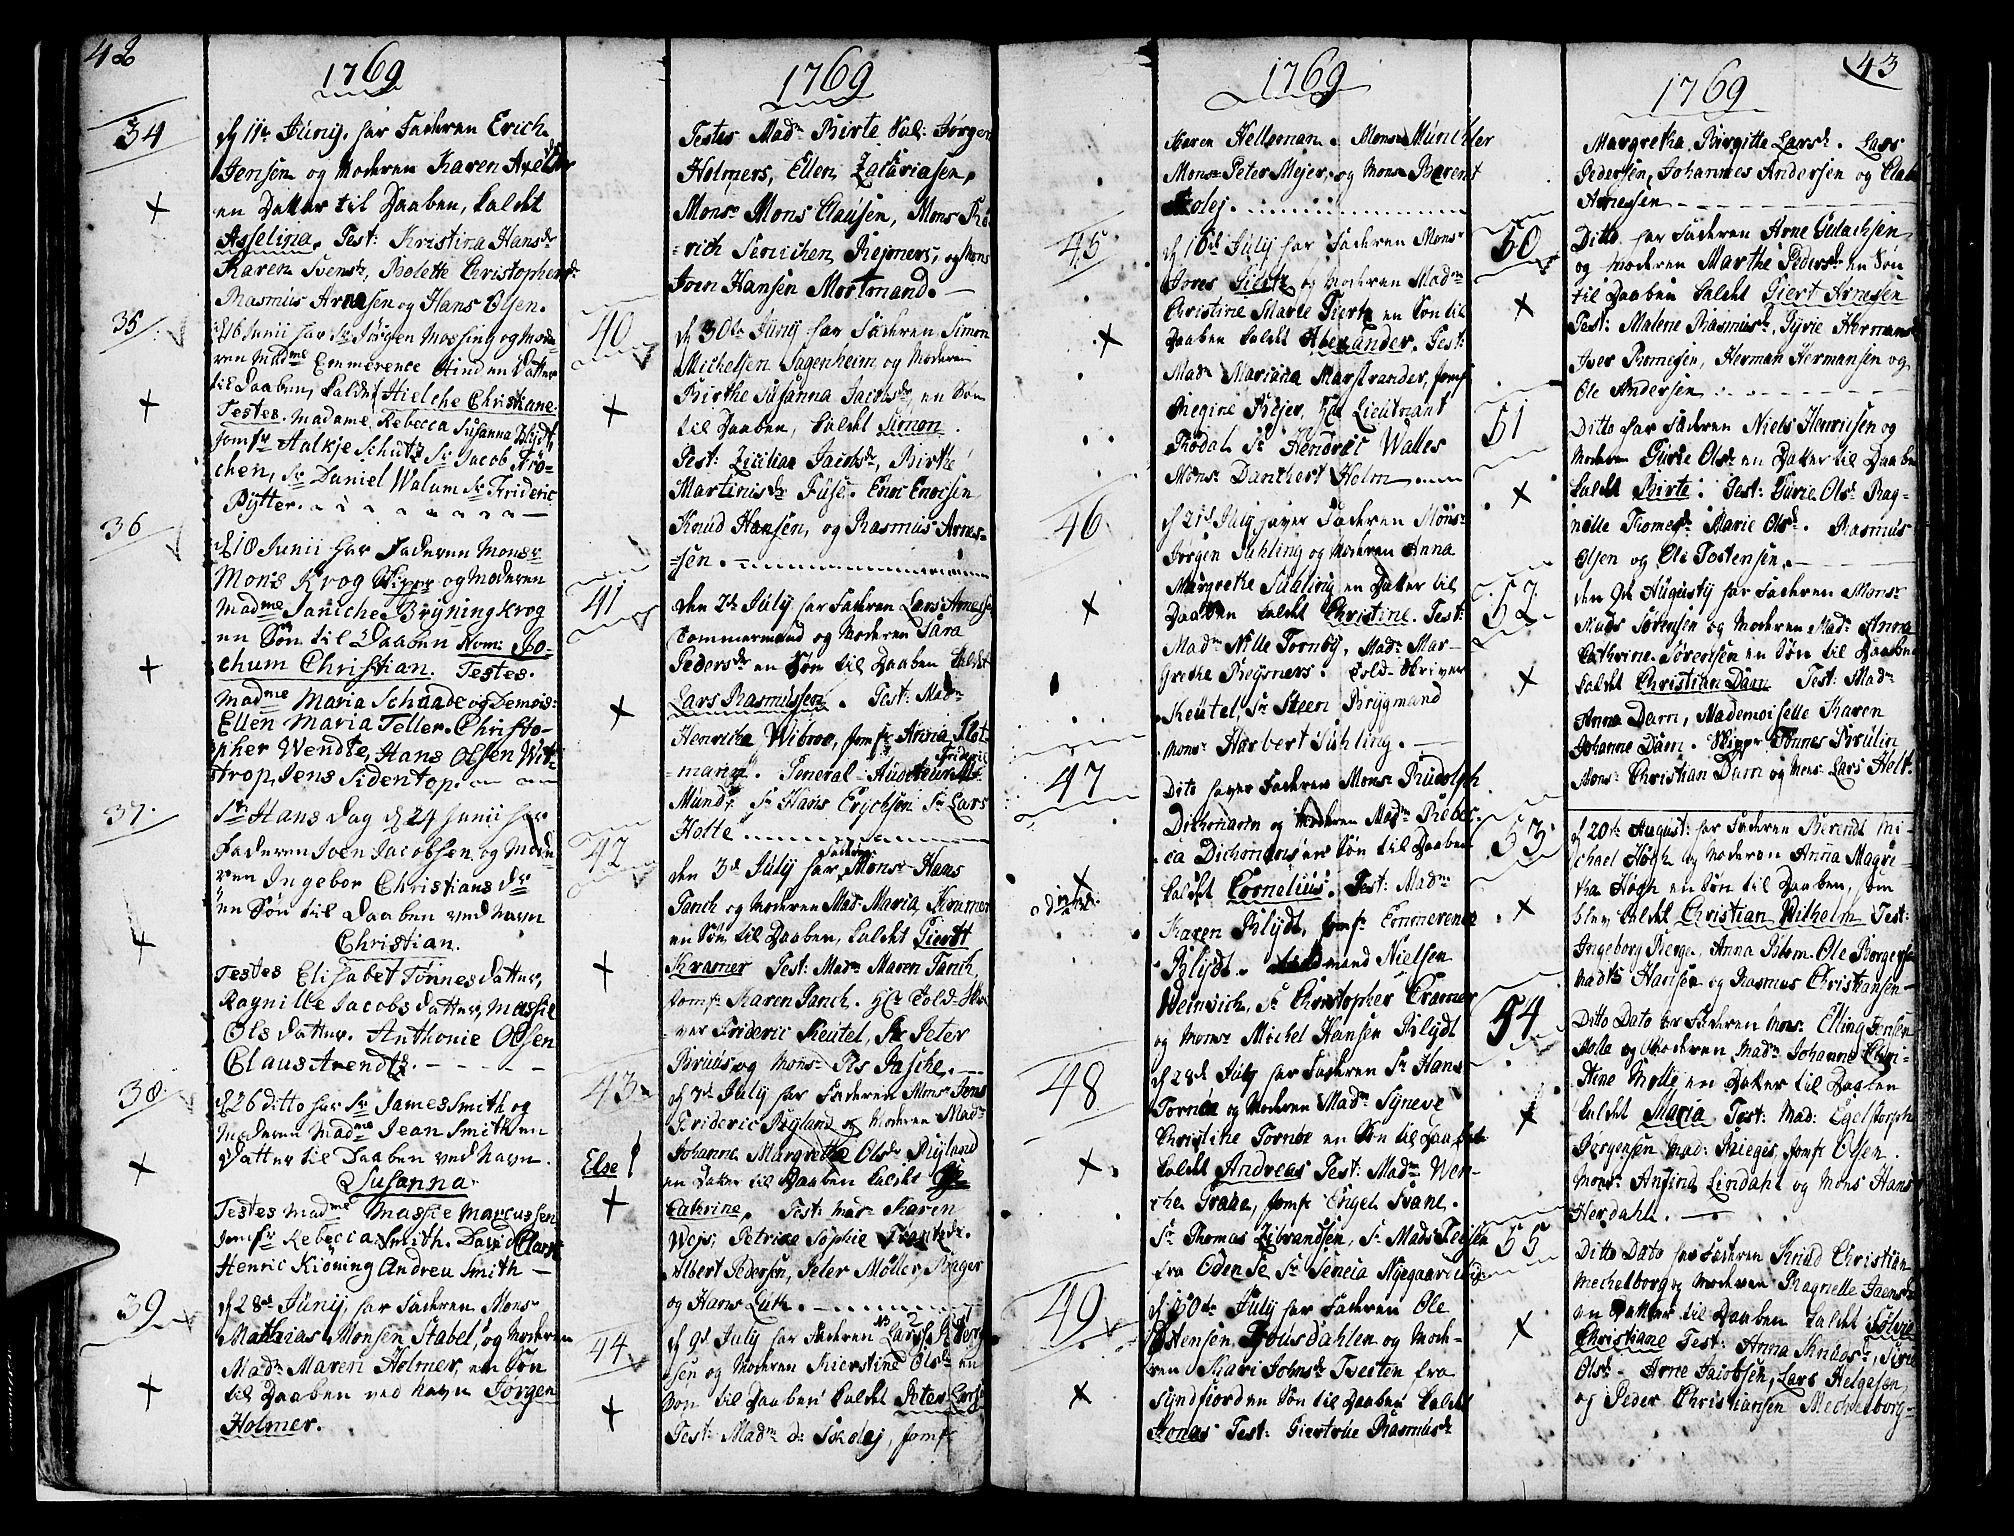 42
1769
34
d 11te Junÿ. har Faderen Erich
Jensen og Moderen Karen Axelsdr
en Datter til Daaben, kaldet
Asselina, Test: Kristina Hansdr
Karen Svensdr, Bolette Christophersdr
Rasmus Arnesen og Hans Olsen.
35
d 16 Junii har Sr Jørgen Mossing og Mode-
ren Madme Emmerence Hind en Datter
til Daaben, kaldet Hielche Christiane
Testes. Madame Rebecca Susanna Blydt,
Jomfr Aalkje Schutz Sr Jacob Frø-
chen, Sr Daniel Walum Sr Frideric
Pÿtter.
36
d 18 Junii har Faderen Monsr
Mons Krog Skippr og Moderen
Madme Janiche Bryning Krog
en Søn til Daaben Nom: Jo-
chum Christian. Testes.
Madme Maria Schaabe og Demois:
Ellen Maria Teller. Christo-
pher Wendte, Hans Olsen Wit-
strop, Jens Sidentop.
37.
St Hans Dag d 24 Junii har
Faderen Joen Jacobsen og Mode-
ren Ingebor Christiansdr
en Søn til Daaben ved Navn
Christian.
Testes Elisabet Tønnesdatter,
Ragnille Jacobsdatter, Massie
Olsdatter. Anthonie Olsen
Claus Arendtz.
38
d 26 ditto har Sr James Smith og
Moderen Madme Jean Smith en
Datter til Daaben ved Navn.
Susanna
Testes Madme Massie Marcussen
Jomfr Rebecca Smith. David Clark
Henric Kiöning Andreu Smith
39
d 28de Junÿ, har Faderen Monsr
Mathias Monsen Stabel, og Moderen
Madm Maren Holmer, en Søn
til Daaben ved Navn Jørgen
Holmer.
1769
Testes Madm Birte Sal: Jørgen
Holmers, Ellen Zakariasen,
Monsr Mons Clausen, Mons
-rich Rejmers, og Mons
Joen Hansen Mortmand.
40
d 30te Junÿ har Faderen Simon
Michelsen Sagenheim og Moderen
Birthe Susanna Jacobsdr, en Søn
til Daaben, kaldet Simon.
Test: Zicilia Jacobsdr, Birthe
Martinusdr Fuse. Enoc Enocsen
Knud Hansen, og Rasmus Arnes-
-sen.
41
den 2de Julÿ har Faderen Lars Arnesen
Tommermand og Moderen Sara
Pedersdr en Søn til Daaben kaldet
Lars Rasmussen. Test: Madm
Henricha Wibroe, Jomfr Anna Flot-
-mann. General-Auditeur Frideric
Mundt. Sr Hans Erichsen Sr Lars
Holte
42
den 3de Julÿ har Faderen Monsr Hans
Tanch og Moderen Mad: Maria Kramer
en Søn til Daaben, kaldet Giertt
Kramer Test: Madm Maren Tanch,
Jomfr Karen Tanch. Hr Told-Skri
-ver Frideric Keutel, Sr Peter
Bruus og Monsr Tis Paske.
43.
d 7de Julÿ har Faderen Monsr Jens
Frideric Rygland og Moderen Madm
Johanna Margretha Olsdr Rygland
en Datter til Daaben kaldet
Else
Cathrine, Test: Mad: Karen
Wejs, Petrica Sophie
Albert Pedersen, Peter Møller, Rasper
og Hans Luth.
44
d 9de Julÿ har Faderen Lars Jørg-
-sen og Moderen Kierstine Olsdr en
Søn til Daaben kaldet Peter Larsen
Test: Madm d: Skolej, Jomfr
1769
Karen Hellesman. Monsr Münchler
Monsr Peter Mejer, og Monsr Barent
Skolej.
45
d 16de Julÿ har Faderen Monsr
Jores Giertz og Moderen Madm
Christine Marie Giertz en Søn til
Daaben kaldet Alexander. Test:
Madm Mariana Marstrander, Jomfr
Regine Blejer, Hr Lieutnant
Rodal Sr Hendric Walles
Monsr Danchert Holm
46
d 21de Julÿ haver Faderen Monsr
Jørgen Suhling og Moderen Anna
Margrethe Suhling en Datter til
Daaben kaldet Christine. Test:
Madm Nille Tornøy. Madm Mar-
grethe Regmers. Told-Skriver
Keutel, Sr Steen Brygmand
Monsr Harbert Suhling.
47
Dito haver Faderen Monsr Rudolph
Dichmann og Moderen Madm Rebec-
ca Dichmans en Søn til Daaben
kaldet Cornelius. Test: Madm
Karen Blydt, Jomfr Emmerence
Blydt. mand Nielsen
Weinwich, Sr Christopher Cramer
og Monsr Michel Hansen Blydt
48
d 28de Julÿ har Faderen Sr Hans
Tornøe og Moderen Madm Synneve
Christine Tornøe en Søn til Daaben
kaldet Andreas Test: Madm Wen-
che Grave, Jomfr Engel Svane.
Sr Thomas Zibrandsen, Sr Mads
fra Odense Sr Seneia Nyegaard
49
d 30te Julÿ har Faderen Ole
Ostensen og Mode-
ren Kari Johnsdr Tveten fra
Syndfiord en Søn til Daaben kaldet
Jonas Test: Giertrue Rasmusdr
43
1769
Margretha, Birgitte Larsdr. Lars
Pedersen, Johannes Andersen og Claus
Arnesen
50
Ditto har Faderen Arne Gulachsen
og Moderen Marthe Pedersdr en Søn
til Daaben kaldet Giert Arnesen
Test: Malene Rasmusdr, Gyrie Hermansdr
Iver Tomesen, Herman Hermansen og
Ole Andersen
51
Ditto har Faderen Niels Henricsen og
Moderen Gurie Olsdr en Datter til Daaben
kaldet Birte. Test: Gurie Olsdr Rag-
nille Thomesdr Marie Olsdr. Rasmus
Olsen og Ole Tostensen.
52.
den 9de Augustÿ har Faderen Monsr
Mads Sørensen og Moderen Madm Anna
Cathrine Sørensen en Søn til Daaben
kaldet Christian Dam Test: Madm
Anna Dam, Mademoiselle Karen
Johanne Dam. Skippr Tønnes Prulin
Monsr Christian Dam og Mons: Lars Helt.
53.
d 20te August: har Faderen Berendt Mi-
chael Høgh og Moderen Anna Magre-
tha Høgh en Søn til Daaben, som
blev kaldet Christian Wilhelm Test:
Ingeborg Berge, Anna Blom. Ole Borgersen
Madts Hansen og Rasmus Christiansen
54
Ditto Dato har Faderen Mons: Elling Jensen
Molle og Moderen Madm Johanne Chri-
stine Molle en Datter til Daaben
kaldet Maria Test: Mad: Egelstorph
Jørgensen Mad: Rieges, Jomfr Olsen.
Monsr Anfind Lindahl og Monsr Hans
Herdahl.
55
Ditto Dato har Faderen Knud Christian
Mechelborg og Moderen Ragnelle Jaensdr
en Datter til Daaben kaldet
Christiane Test: Anna Knudsdr, Siri
Olsdr. Arne Jacobsen, Lars Helgesen,
og Peder Christiansen Mechelborg